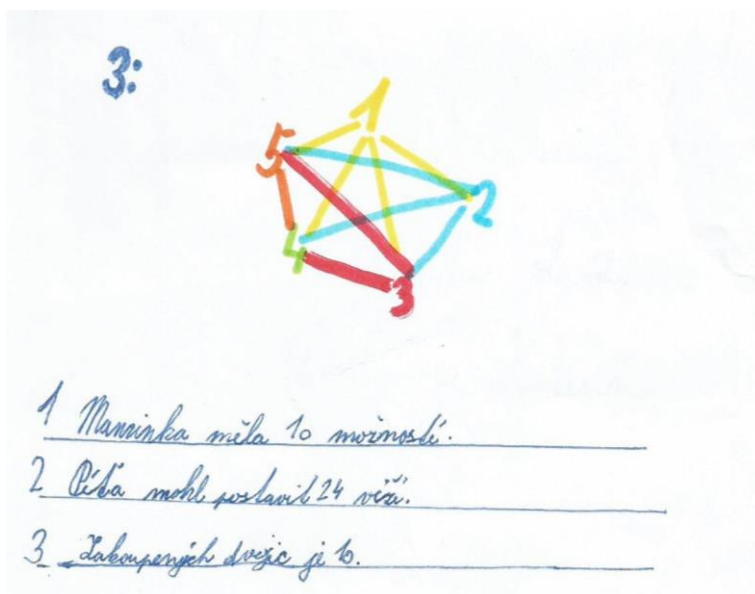 3:
1
5
2
4
3
1 Maminka měla 10 možností.
2 Péťa mohl postavit 24 věží.
3 Zakoupených dvojic je 10.